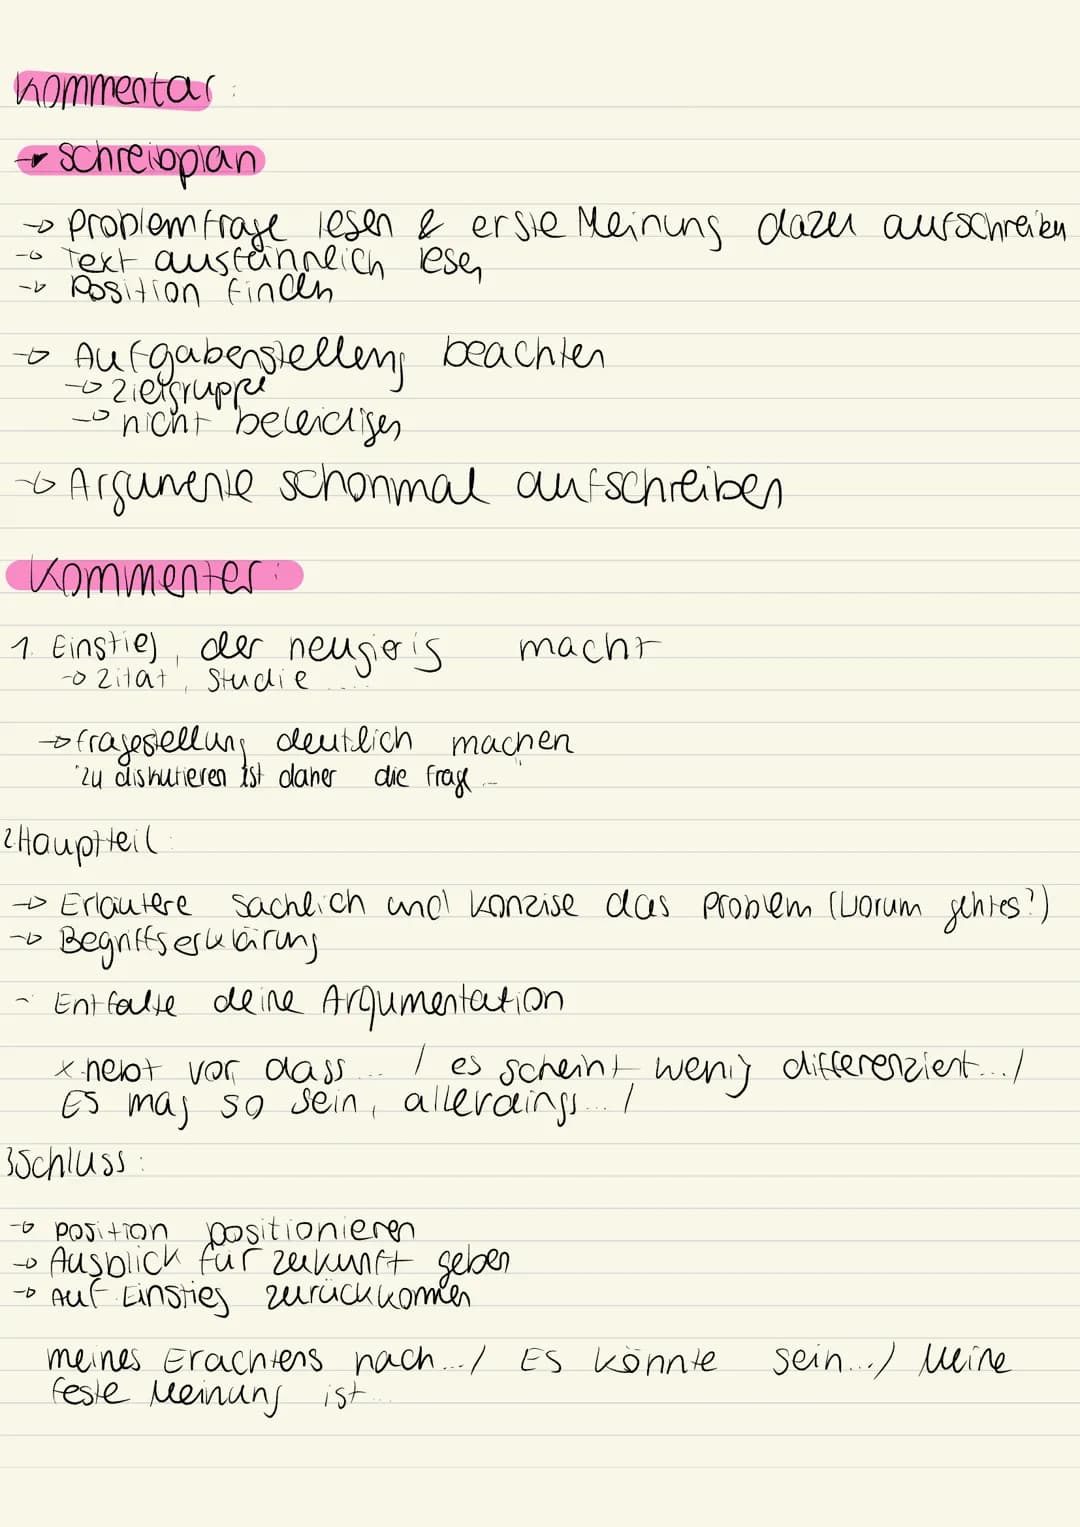 Kommentar:
→ Schreibplan
→ Problemfrage lesen & erste Meinung dazu aufschreiben
→ Text ausführlich lesen
→ Position finden
→ Aufgabenstellung beachten
→ Zielgruppe
→ nicht beleidigen
→ Argumente schonmal aufschreiben
Kommenter:
1. Einstieg, der neugierig macht
→ Zitat, Studie ....
→ fragestellung deutlich machen
"Zu diskutieren ist daher die Frage ..."
2 Hauptteil:
→ Erläutere sachlich und konzise das Problem (Worum gehtes?)
→ Begriffserklärung
- Entfalte deine Argumentation
x hebt vor, dass ... / es scheint wenig differenziert... /
Es mag so sein, allerdings ... /
3 Schluss:
→ Position positionieren
→ Ausblick für zukunft geben
→ Auf Einstieg zurückkommen
meines Erachtens nach ... / Es könnte sein... / Meine
feste Meinung ist ...